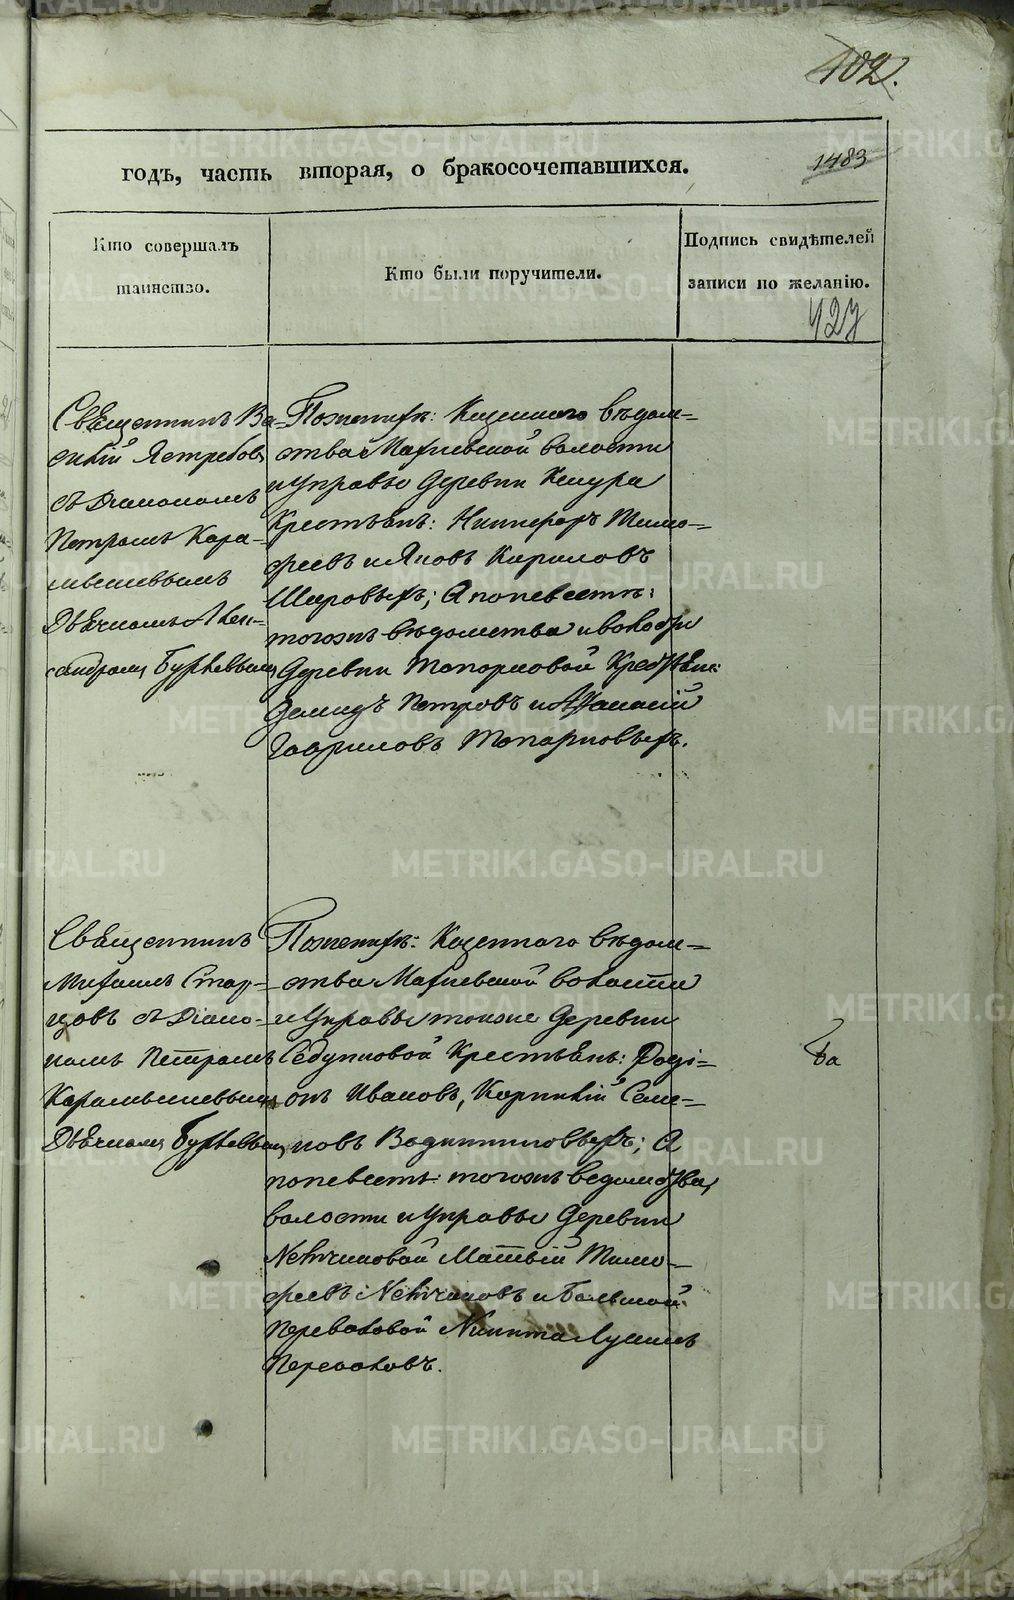 102.
годъ, часть вторая, о бракосочетавшихся.
1483
Кто совершалъ
таинство.
Кто были поручители.
Подпись свидѣтелей
записи по желанію.
427
Священникъ Ва-
силій Ястребовъ
съ Діакономъ
Петромъ Кара-
мышевымъ
Дьячкомъ Алек-
сандромъ
По женихѣ: Казеннаго вѣдом-
ства волости
и Управы деревни
Крестьяне: Никифоръ Тимо-
феевъ и Яковъ Кириловъ
Шаровыхъ; А по невестѣ:
тогожъ вѣдомства и волости
деревни Топорковой Крестьяне:
Демидъ Петровъ и Афанасій
Гавриловъ Топорковыхъ.
Священникъ
Михаилъ Стар-
цовъ съ Діако-
номъ Петромъ
Карамышевымъ
Дьячкомъ
По женихѣ: Казеннаго вѣдом-
ства волости
и Управы тоже деревни
Седунковой Крестьяне: Роді-
онъ Ивановъ, Корнилій Семе-
новъ А
по невестѣ тогожъ ведомства,
волости и Управы деревни
Матвѣй Тимо-
феевъ и Большой
Переваловой Никита
Переваловъ.